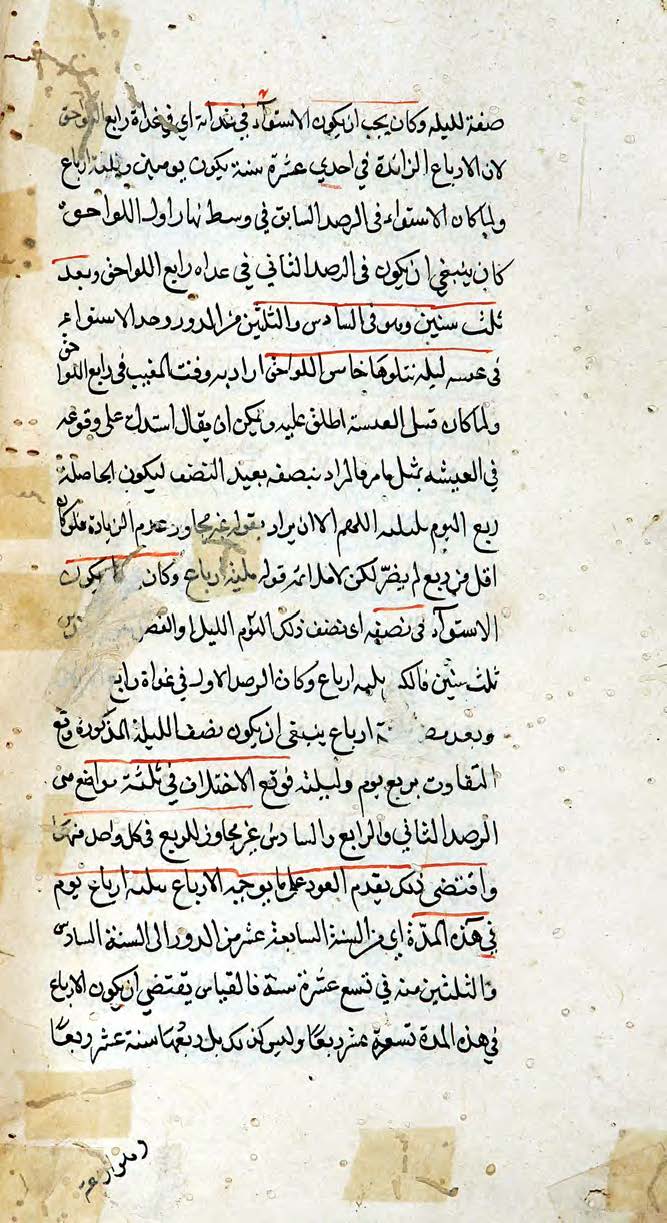 صفة لليله وكان يجب ان يكون الاستوآء في غداته اي في غداة رابع اللواحق
لان الارباع الزائدة في احدي عشرة سنة يكون يومين وثلثة ارباع
ولما كان الاستواء في الرصد السابق في وسط نهار اول اللواحق
كان ينبغي ان يكون في الرصد الثاني في غداه رابع اللواحق وبعد
ثلث سنين وهو في السادس والثلثين من الدور وجد الاستواء
في ليله تتلوها خامس اللواحق اراد به وقت المغيب في رابع اللواحق
ولما كان اطلق عليه ويمكن ان يقال استدل علي وقوعه
في بمثل ما مر فالمراد بنصفه بعيد النصف ليكون الحاصلة
ربع اليوم بليلته اللهم الا ان يراد بقوله غير مجاوز عدم الزيادة فلو كان
اقل من ربع لم يضر لكن قوله ثلثة ارباع وكان يكون
الاستوآء في نصفه اي نصف ذلك اليوم الليل او
ثلث سنين ثلثه ارباع وكان الرصد الاول في غداة رابع
وبعد ارباع ينبغي ان يكون نصف الليلة المذكورة وقع
التفاوت بربع يوم وليلته فوقع الاختلاف في ثلثة مواضع من
الرصد الثاني والرابع والسادس غير مجاوز للربع في كل واحد منها
واقتضي ذلك تقدم العود علي ما يوجبه الارباع ثلثه ارباع يوم
في هذه المدة اي من السنة السابعة عشر من الدور الي السنة السادس
والثلثين منه في تسع عشرة سنة فالقياس يقتضي ان يكون الارباع
في هذه المدة تسعة عشر ربعا وليس كذلك بل ربعها ستة عشر ربعا